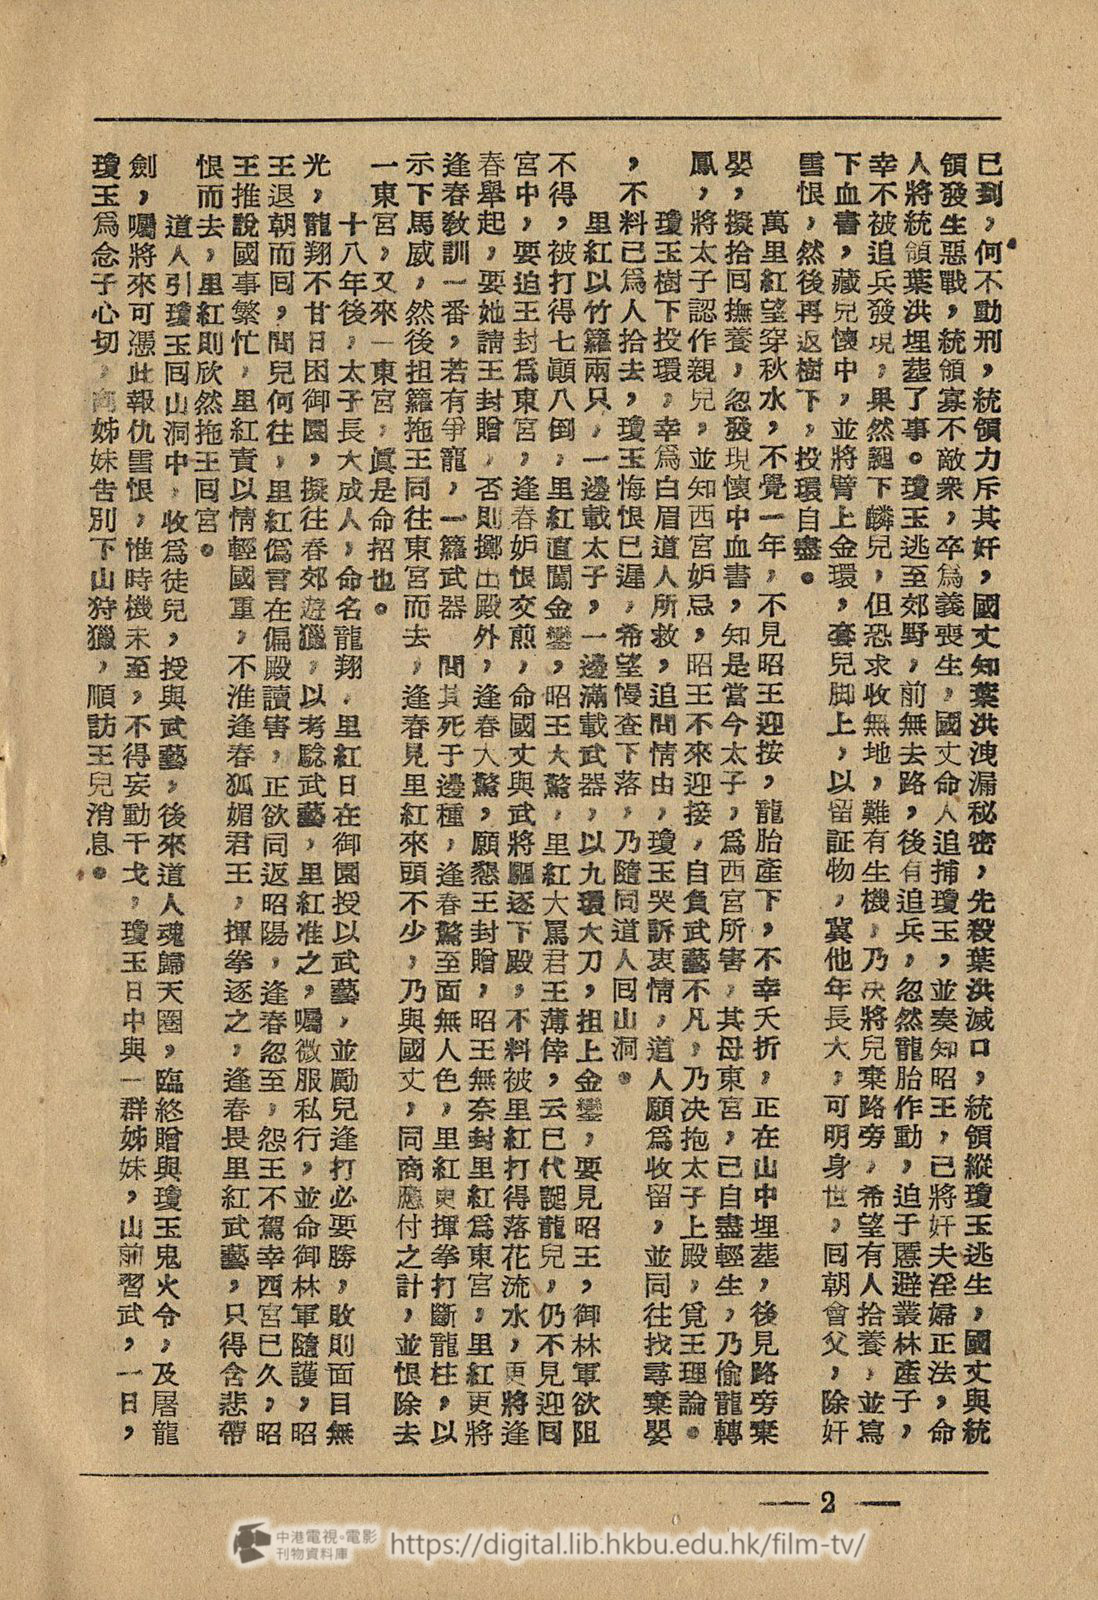 已到，何不動刑，統領力斥其奸，國丈知葉洪洩漏秘密，先殺葉洪滅口，統領縱瓊玉逃生，國丈與統
領發生惡戰，統領寡不敵衆，卒爲義喪生，國丈命人追捕瓊玉，並奏知昭王，已將奸夫淫婦正法，命
人將統領葉洪埋葬了事。瓊玉逃至郊野，前無去路，後有追兵，忽然龍胎作動，迫于慝避叢林產子，
幸不被追兵發現，果然誕下麟兒，但恐求收無地，難有生機，乃决將兒棄路旁，希望有人拾養，並寫
下血書，藏兒懷中，並將臂上金環，套兒脚上，以留証物，冀他年長大，可明身世，囘朝會父，除奸
雪恨，然後再返樹下，投環自盡。
萬里紅望穿秋水，不覺一年，不見昭王迎按，龍胎產下，不幸夭折，正在山中埋葬，後見路旁棄
嬰，擬拾囘撫養，忽發現懷中血書，知是當今太子，爲西宮所害，其母東宮，已自盡輕生，乃偷龍轉
鳳，將太子認作親兒，並知西宮妒忌，昭王不來迎接，自負武藝不凡，乃决抱太子上殿，覓王理論。
瓊玉樹下投環，幸爲白眉道人所救，追問情由，瓊玉哭訴衷情，道人願爲收留，並同往找尋棄嬰
，不料已爲人拾去，瓊玉悔恨已遲，希望慢查下落，乃隨同道人囘山洞。
里紅以竹籮兩只，一邊載太子，一邊滿載武器，以九環大刀，扭上金鑾，要見昭王，御林軍欲阻
不得，被打得七顚八倒，里紅直闖金鑾，昭王大驚，里紅大罵君王薄倖，云已代誕龍兒，仍不見迎囘
宮中，要追王封爲東宮，逢春妒恨交煎，命國丈與武將驅逐下殿，不料被里紅打得落花流水，更將逢
春舉起，要她請王封贈，否則擲出殿外，逢春大驚，願懇王封贈，昭王無奈封里紅爲東宮，里紅更將
逢春敎訓一番，若有爭寵，一籮武器　問其死于邊種，逢春驚至面無人色，里紅更揮拳打斷龍柱，以
示下馬威，然後担籮拖王同往東宮而去，逢春見里紅來頭不少，乃與國丈，同商應付之計，並恨除去
一東宮，又來一東宮，眞是命招也。
十八年後，太子長大成人，命名龍翔．里紅日在御園授以武藝，並勵兒逢打必要勝，敗則面目無
光，龍翔不甘日困御園，擬往春郊遊獵，以考騐武藝，里紅准之，囑微服私行，並命御林軍隨護，昭
王退朝而囘，問兒何往，里紅僞言在偏殿讀害，正欲同返昭陽，逢春忽至，怨王不駕幸西宮已久，昭
王推說國事繁忙，里紅責以情輕國重，不准逢春狐媚君王，揮拳逐之，逢春畏里紅武藝，只得含悲帶
恨而去，里紅則欣然拖王囘宮。
道人引瓊玉囘山洞中，收爲徒兒，授與武藝，後來道人魂歸天國，臨終贈與瓊玉鬼火令，及屠龍
劍，囑將來可憑此報仇雪恨，惟時機未至，不得妄動干戈，瓊玉日中與一群姊妹，山前習武，一日，
瓊玉爲念子心切，商姊妹告別下山狩獵，順訪王兒消息。
— 2 —
中港電視·電影
刊物資料庫
https://digital.lib.hkbu.edu.hk/film-tv/